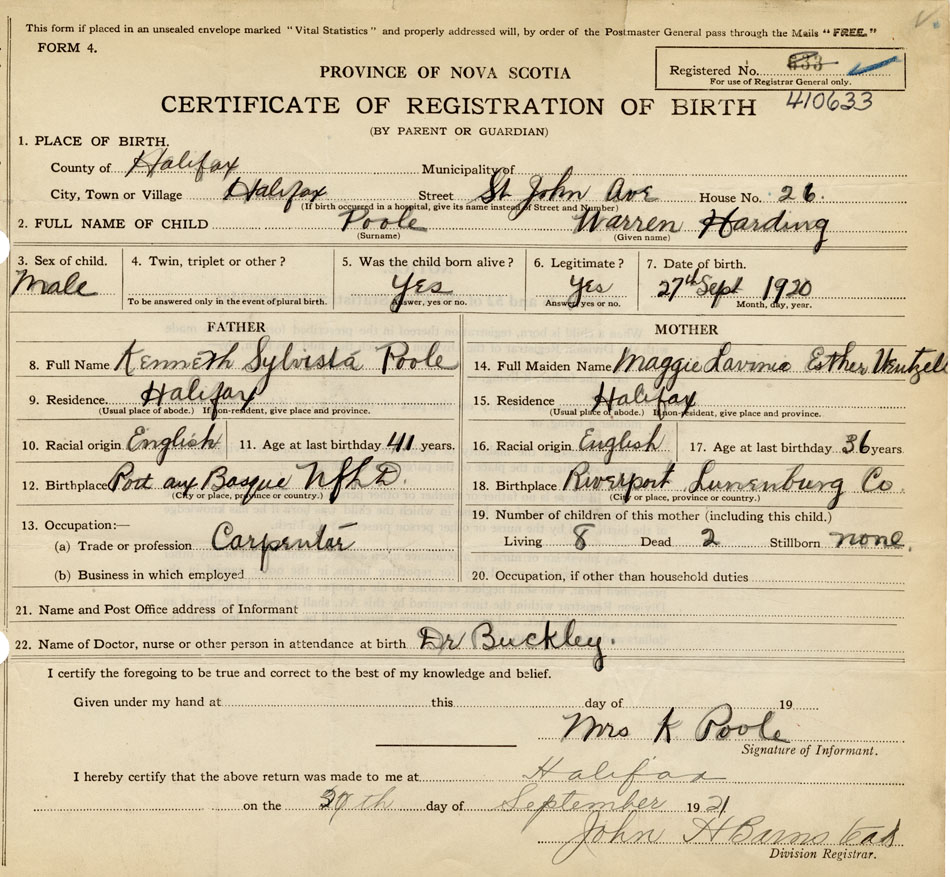 This form if placed in an unsealed envelope marked "Vital Statistics" and properly addressed will, by order of the Postmaster General pass through the Mails "FREE."
FORM 4.
PROVINCE OF NOVA SCOTIA
Registered No. 633
For use of Registrar General only.
CERTIFICATE OF REGISTRATION OF BIRTH 410633
(BY PARENT OR GUARDIAN)
1. PLACE OF BIRTH.
County of Halifax Municipality of
City, Town or Village Halifax Street St John Ave House No. 26.
(If birth occurred in a hospital, give its name instead of Street and Number)
2. FULL NAME OF CHILD Poole Warren Harding
(Surname) (Given name)
3. Sex of child. 4. Twin, triplet or other ? 5. Was the child born alive ? 6. Legitimate ? 7. Date of birth.
Male Yes Yes 27th Sept 1920
To be answered only in the event of plural birth. Answer, yes or no. Answer, yes or no. Month, day, year.
FATHER MOTHER
8. Full Name Kenneth Sylvista Poole 14. Full Maiden Name Maggie Lavinia Esther Wentzell
9. Residence. Halifax 15. Residence Halifax
(Usual place of abode.) If non-resident, give place and province. (Usual place of abode.) If non-resident, give place and province.
10. Racial origin English 11. Age at last birthday 41 years. 16. Racial origin English 17. Age at last birthday 36 years.
12. Birthplace Port aux Basque Nfld. 18. Birthplace Riverport Lunenburg Co.
(City or place, province or country.) (City or place, province or country.)
13. Occupation:— 19. Number of children of this mother (including this child.)
(a) Trade or profession Carpentar Living 8 Dead 2 Stillborn none.
(b) Business in which employed 20. Occupation, if other than household duties
21. Name and Post Office address of Informant
22. Name of Doctor, nurse or other person in attendance at birth Dr Buckley.
I certify the foregoing to be true and correct to the best of my knowledge and belief.
Given under my hand at this day of 19
Mrs K Poole
Signature of Informant.
I hereby certify that the above return was made to me at Halifax
on the day of September 1921
John H Barnstead
Division Registrar.